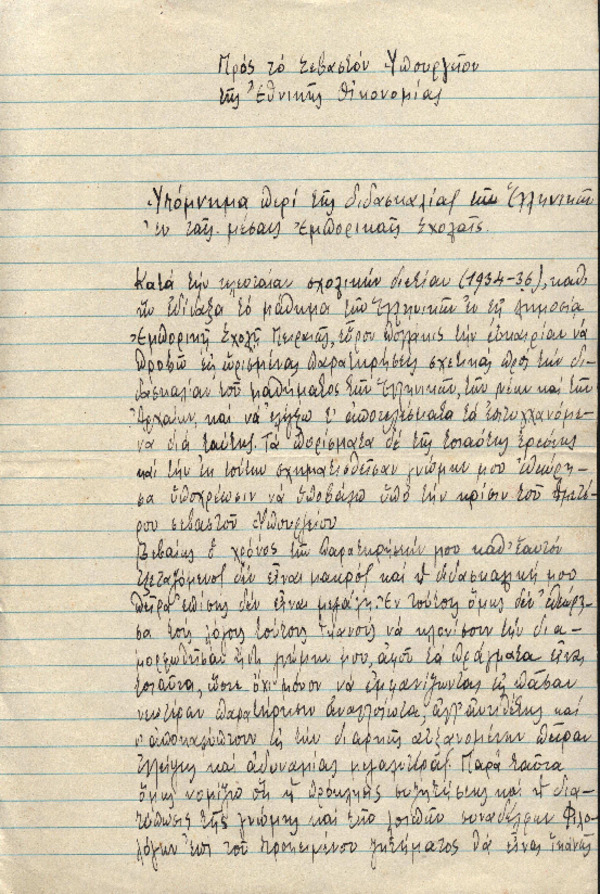 Πρὸς τὸ Σεβαστὸν Ὑπουργεῖον
τῆς Ἐθνικῆς Οἰκονομίας
Ὑπόμνημα περὶ τῆς διδασκαλίας τῶν Ἑλληνικῶν
ἐν ταῖς μέσαις Ἐμπορικαῖς Σχολαῖς.
Κατὰ τὴν τελευταίαν σχολικὴν διετίαν (1934-36), καθ'
ἣν ἐδίδαξα τὸ μάθημα τῶν Ἑλληνικῶν ἐν τῇ Δημοσίᾳ
Ἐμπορικῇ Σχολῇ Πειραιῶς, εὗρον πολλάκις τὴν εὐκαιρίαν νὰ
προβῶ εἰς ὡρισμένας παρατηρήσεις σχετικὰς πρὸς τὴν δι-
δασκαλίαν τοῦ μαθήματος τῶν Ἑλληνικῶν, τῶν νέων καὶ τῶν
Ἀρχαίων, καὶ νὰ ἐλέγξω τ' ἀποτελέσματα τὰ ἐπιτυγχανόμε-
να διὰ ταύτης. Τὰ πορίσματα δὲ τῆς τοιαύτης ἐρεύνης
καὶ τὴν ἐκ τούτων σχηματισθεῖσαν γνώμην μου ἐθεώρη-
σα ὑποχρέωσιν νὰ ὑποβάλω ὑπὸ τὴν κρίσιν τοῦ Ἡμετέ-
ρου σεβαστοῦ Ὑπουργείου
Βεβαίως ὁ χρόνος τῶν παρατηρήσεών μου καθ' ἑαυτὸν
ἐξεταζόμενος δὲν εἶναι μακρὸς καὶ ἡ διδασκαλική μου
πεῖρα ἐπίσης δὲν εἶναι μεγάλη. Ἐν τούτοις ὅμως δὲν ἐθεώρη-
σα τοὺς λόγους τούτους ἱκανοὺς νὰ κλονίσουν τὴν δια-
μορφωθεῖσαν γνώμην μου, ἀφοῦ τὰ πράγματα εἶναι
τοιαῦτα, ὥστε ὄχι μόνον νὰ ἐμφανίζωνται εἰς πᾶσαν
νεωτέραν παρατήρησιν ἀναλλοίωτα, ἀλλ' ἀντιθέτως καὶ
ν' ἀποκαλύπτουν εἰς τὴν διαρκῶς αὐξανομένην πεῖραν
ἐλλείψεις καὶ ἀδυναμίας μεγαλυτέρας. Παρὰ ταῦτα
ὅμως νομίζω ὅτι ἡ πρόκλησις συζητήσεως καὶ ἡ δια-
τύπωσις τῆς γνώμης καὶ τῶν λοιπῶν συναδέλφων Φιλο-
λόγων ἐπὶ τοῦ προκειμένου ζητήματος θὰ εἶναι ἱκανὴ